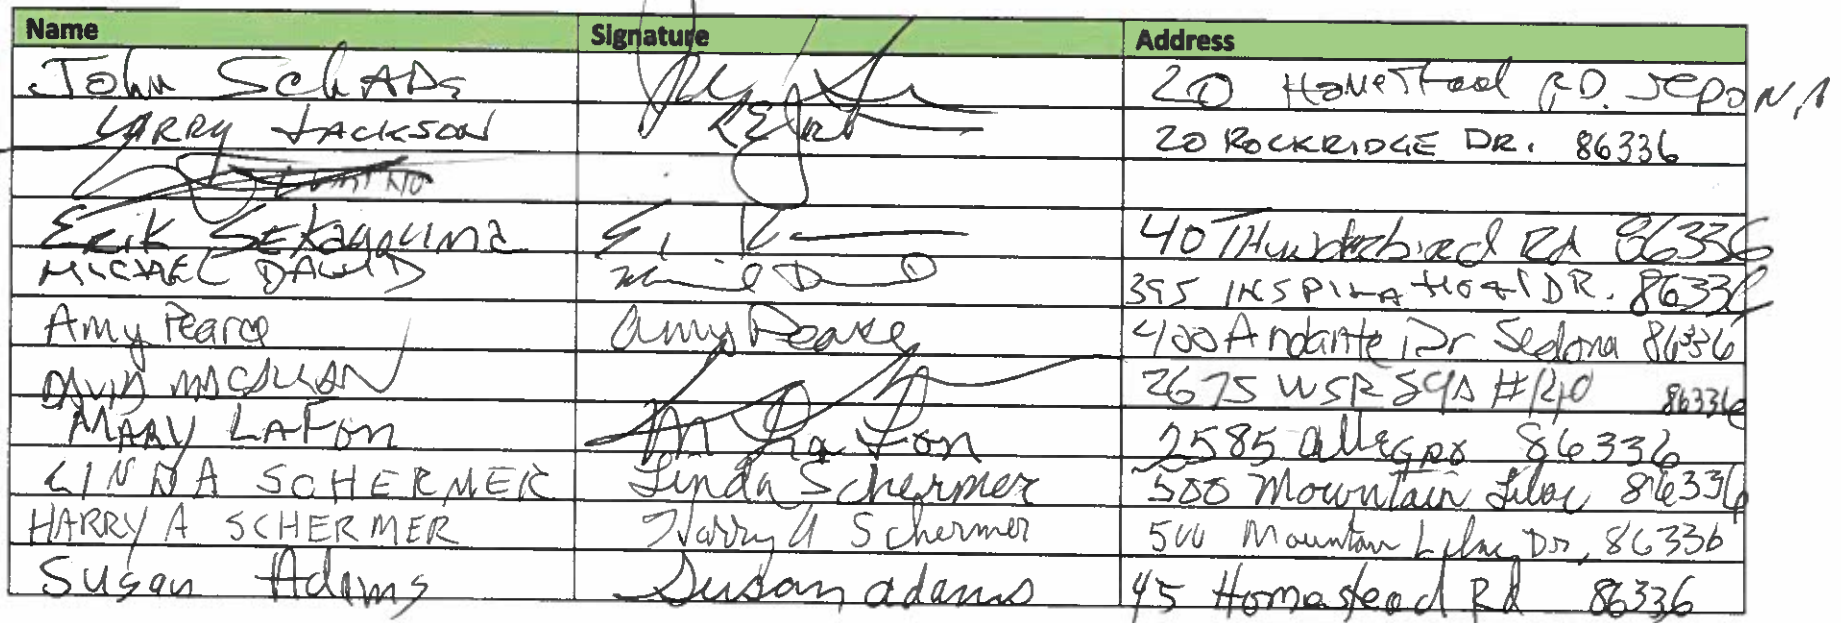 Name Signature Address
John Schade 20 Homestead RD. Sedona
LARRY JACKSON 20 ROCKRIDGE DR. 86336
Erik Sekagouma 40 Thunderbird Rd 86336
MICHAEL DAVID 395 INSPIRATIONAL DR. 86336
Amy Pearce Amy Pearce 400 Andante Dr Sedona 86336
DAVID 2675 WSR 86336
MARY LAFON M LaFon 2585 Allegro 86336
LINDA SCHERMER Linda Schermer 500 Mountain Lilac 86336
HARRY A SCHERMER Harry A Schermer 500 Mountain Lilac Dr, 86336
Susan Adams Susan adams 45 Homestead Rd 86336